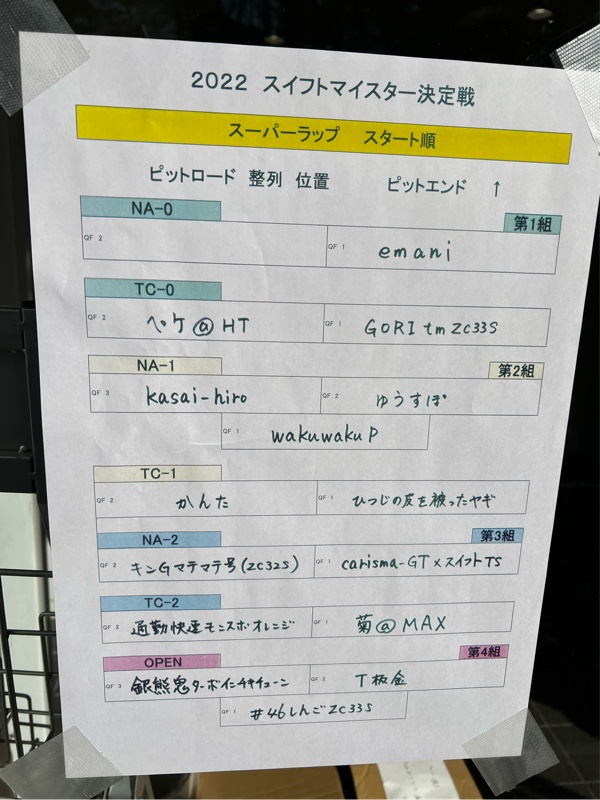 2022 スイフトマイスター決定戦
スーパーラップ スタート順
ピットロード 整列 位置 ピットエンド ↑
NA-0 第1組
QF 2 QF 1 emani
TC-0
QF 2 ペケ@HT QF 1 GORI tm ZC33S
NA-1 第2組
QF 3 kasai-hiro QF 2 ゆうすぽ
QF 1 wakuwaku P
TC-1
QF 2 かんた QF 1 ひつじの皮を被ったヤギ
NA-2 第3組
QF 2 キンGマテマテ号(ZC32S) QF 1 carisma-GT×スイフトTS
TC-2
QF 2 通勤快速モンスポオレンジ QF 1 菊@MAX
OPEN 第4組
QF 3 銀熊鬼ターボインチキチューン QF 2 T板金
QF 1 #46しんごZC33S